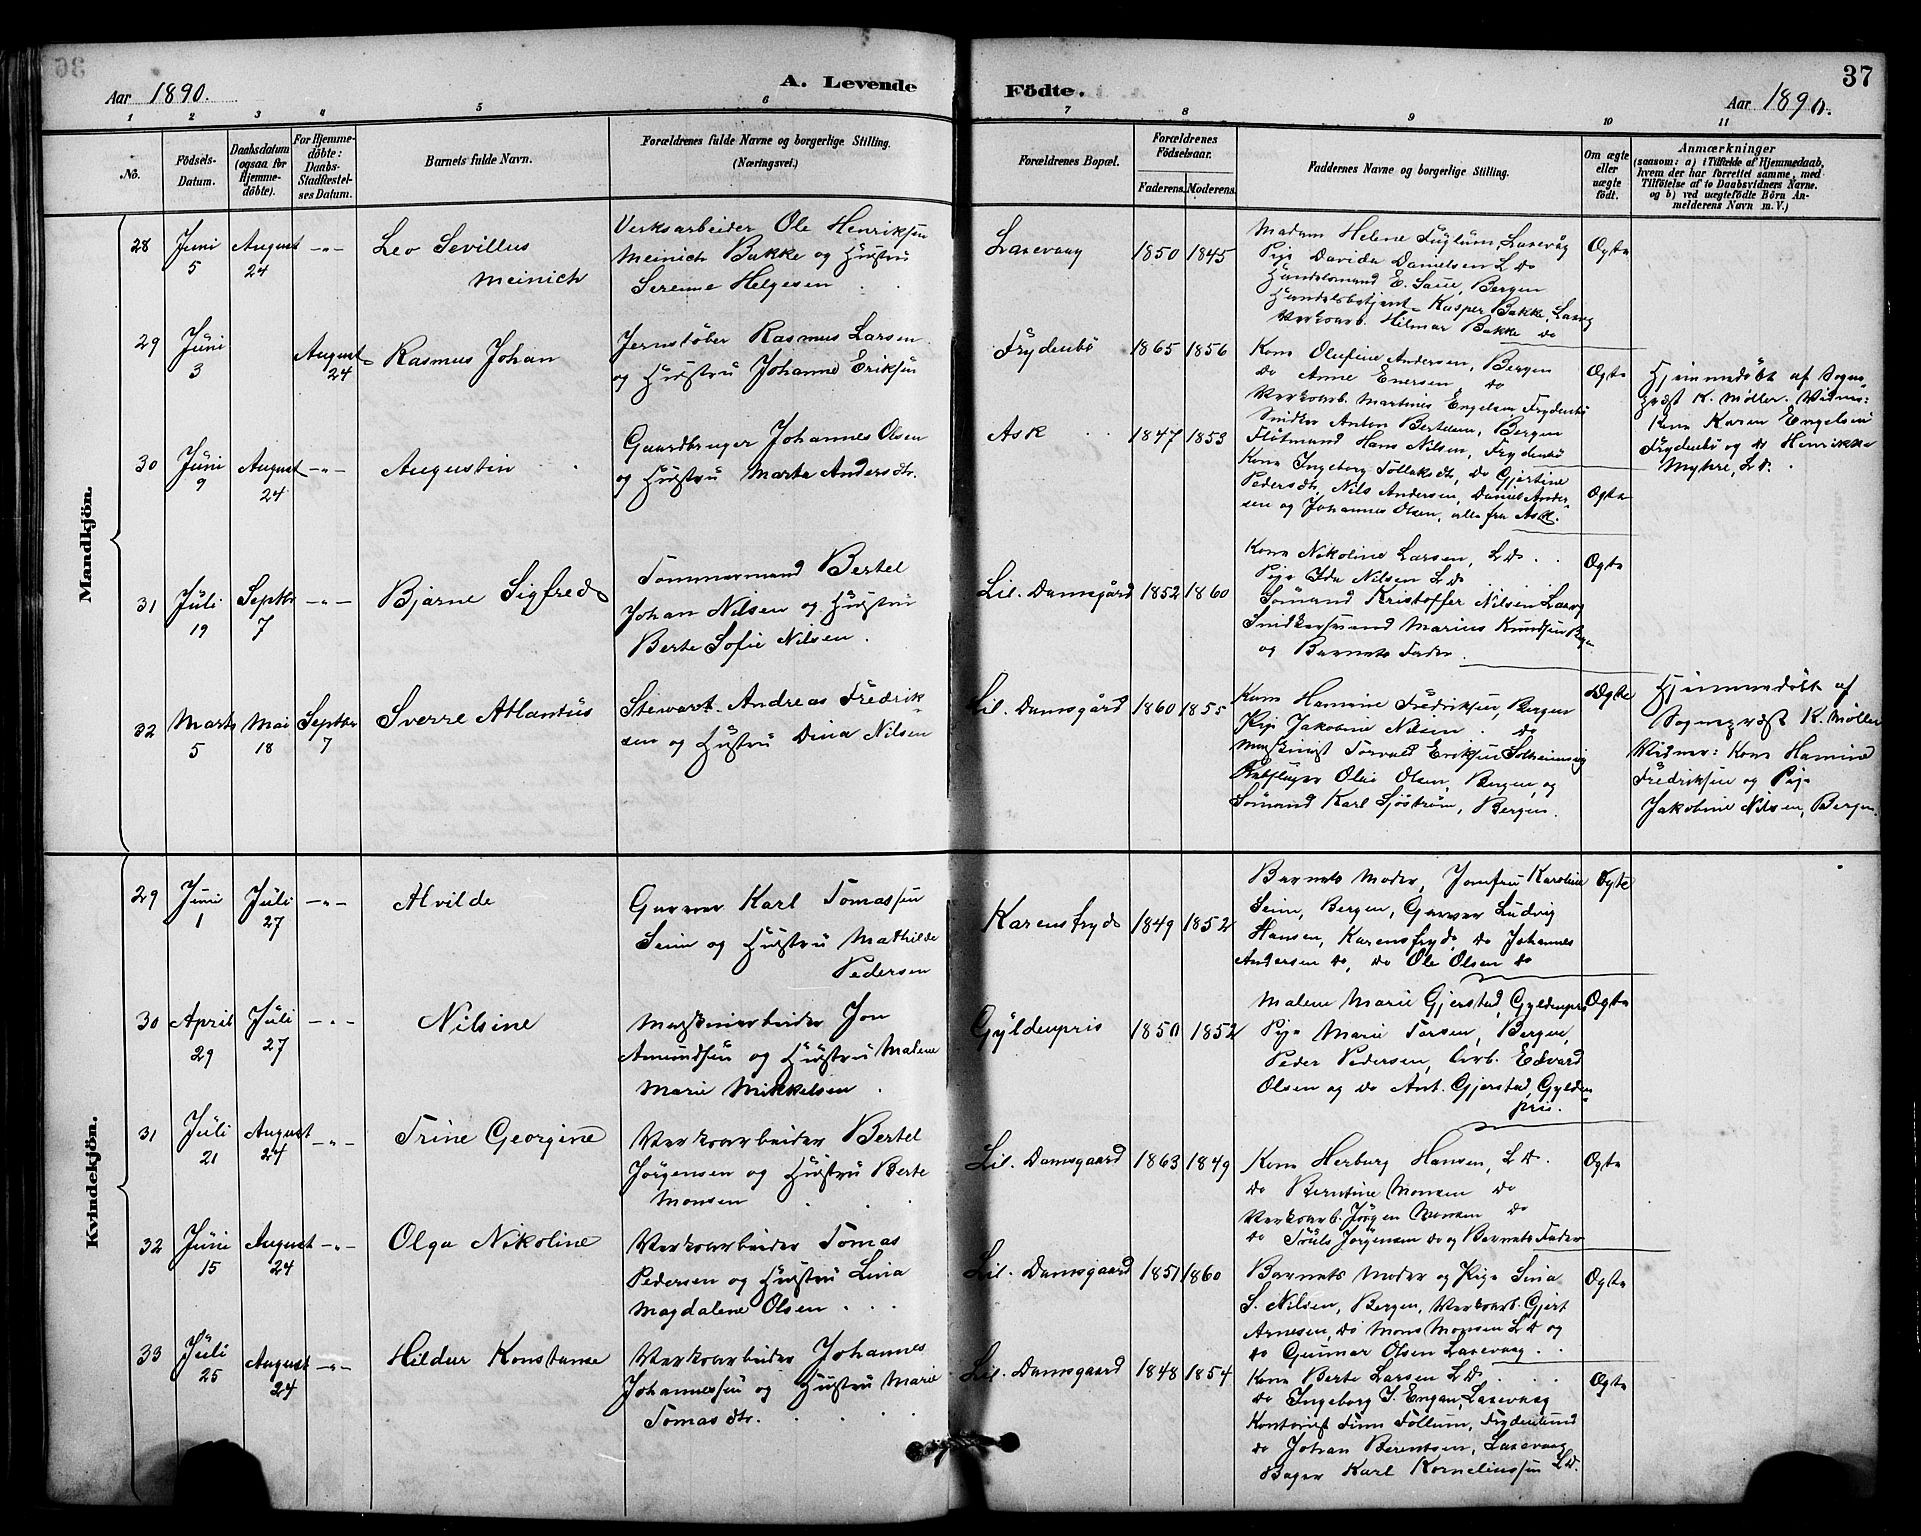 36
Aar 1890.
A. Levende
Födte.
Aar 1890.
37
1 2 3 4 5 6 7 8 9 10 11
No.
Födsels-
Datum.
Daabsdatum
(ogsaa for
Hjemme-
döbte).
For Hjemme-
döbte:
Daabs
Stadfæstel-
ses Datum.
Barnets fulde Navn.
Forældrenes fulde Navne og borgerlige Stilling.
(Næringsvei.)
Forældrenes Bopæl.
Forældrenes
Födselsaar.
Faderens. Moderens.
Faddernes Navne og borgerlige Stilling.
Om ægte
eller
uægte
födt.
Anmærkninger
(saasom: a) i Tilfælde af Hjemmedaab,
hvem der har forrettet samme, med
Tilföielse af to Daabsvidners Navne.
og b) ved uægtefödte Börn An-
melderens Navn m. V.)
Mandkjön.
28 Juni 5 August 24 -"- Leo Sevillus
Meinich
Verksarbeider Ole Henriksen
Meinich Bakke og Hustru
Serenne Helgesen
Laxevaag 1850 1845
Madam Helene Fuglum, Laxevåg
Pige Davida Danielsen L D
Handelsmand E. Saue, Bergen
Handelsbetjent Kasper Bakke, Laxvg
Verksarb. Hilmar Bakke do
Ægte
29 Juni 3 August 24 Rasmus Johan
Jernstøber Rasmus Larsen
og Hustru Johanne Eriksen
Frydenbö 1865 1856
Kone Olufine Andersen, Bergen
do Anne Enersen do
Verksarb. Martines Engelsen Frydenbö
Snidker Anton Bertelsen, Bergen
Flötmand Hans Nilsen, Frydenbö
Ægte
Hjemmedöbt af Sogne-
præst K. Møller. Vidner:
Kone Karen Engelsen
Frydenbö og do Henrikke
Myhre, L D.
30 Juni 9 August 24 -"- Augustin
Gaardbruger Johannes Olsen
og Hustru Marta Andersdtr.
Ask 1847 1853
Kone Ingeborg Tollaksdtr, do Gjertine
Pedersdtr, Nils Andersen, Daniel Ander-
sen og Johannes Olsen, alle fra Ask.
Ægte
31 Juli 19 Septbr 7 -"- Bjarne Sigfred
Tømmermand Bertel
Johan Nilsen og Hustru
Berte Sofie Nilsen.
Lil. Damsgård 1852 1860
Kone Nikoline Larsen, L D
Pige Ida Nilsen L D
Sømand Kristoffer Nilsen Laxvg
Snidkersvend Marius Knudsen Bgn
og Barnets Fader.
Ægte
32 Marts 5 Mai 18 Septbr 7 Sverre Atlantus
Stewart Andreas Fredrik-
sen og Hustru Dina Nilsen
Lil. Damsgård 1860 1855
Kone Hamine Fredriksen, Bergen
Pige Jakobine Nilsen do
Maskinist Torvald Eriksen Solheimsvig
Rebslager Olai Olsen, Bergen, og
Sømand Karl Sjöström, Bergen.
Ægte
Hjemmedöbt af
Sognepræst K. Møller
Vidner: Kone Hamine
Fredriksen og Pige
Jakobine Nilsen, Bergen
Kvindekjön.
29 Juni 1 Juli 27 -"- Alvilde
Garver Karl Tomassen
Seim og Hustru Mathilde
Pedersen
Karensfryd 1849 1852
Barnets Moder, Jomfru Karoline
Seim, Bergen, Garver Ludvig
Hansen, Karensfryd, do Johannes
Andersen do, do Ole Olsen do
Ægte
30 April 29 Juli 27 -"- Nilsine
Maskinarbeider Jon
Amundsen og Hustru Malene
Marie Mikkelsen
Gyldenpris 1850 1852
Malene Marie Gjerstad, Gyldenpris
Pige Marie Torsen, Bergen,
Peder Pedersen, Arb. Edvard
Olsen og do Ant. Gjerstad, Gylden-
pris.
Ægte
31 Juli 21 August 24 -"- Trine Georgine
Verksarbeider Bertel
Jørgensen og Hustru Berte
Monsen
Lil. Damsgaard 1863 1849
Kone Herborg Hansen, L D.
do Berntine Monsen do
Verksarb. Jørgen Monsen do
do Truls Jørgensen do og Barnets Fader
Ægte
32 Juni 15 August 24 -"- Olga Nikoline
Verksarbeider Tomas
Pedersen og Hustru Lina
Magdalene Olsen
Lil. Damsgaard 1851 1860
Barnets Moder og Pige Sina
S. Nilsen, Bergen, Verksarb. Gjert
Arnesen, do Mons Monsen L D og
do Gunnar Olsen Laxevaag
Ægte
33 Juli 25 August 24 -"- Hildur Konstanse
Verksarbeider Johannes
Johannessen og Hustru Marie
Tomasdtr.
Lil. Damsgaard 1848 1854
Kone Berte Larsen L D.
do Ingeborg J. Engan, Laxevaag
Kontorist Finn Follum, Frydenlund
do Johan Berentsen, Laxevaag
Bager Karl Korneliussen L D.
Ægte